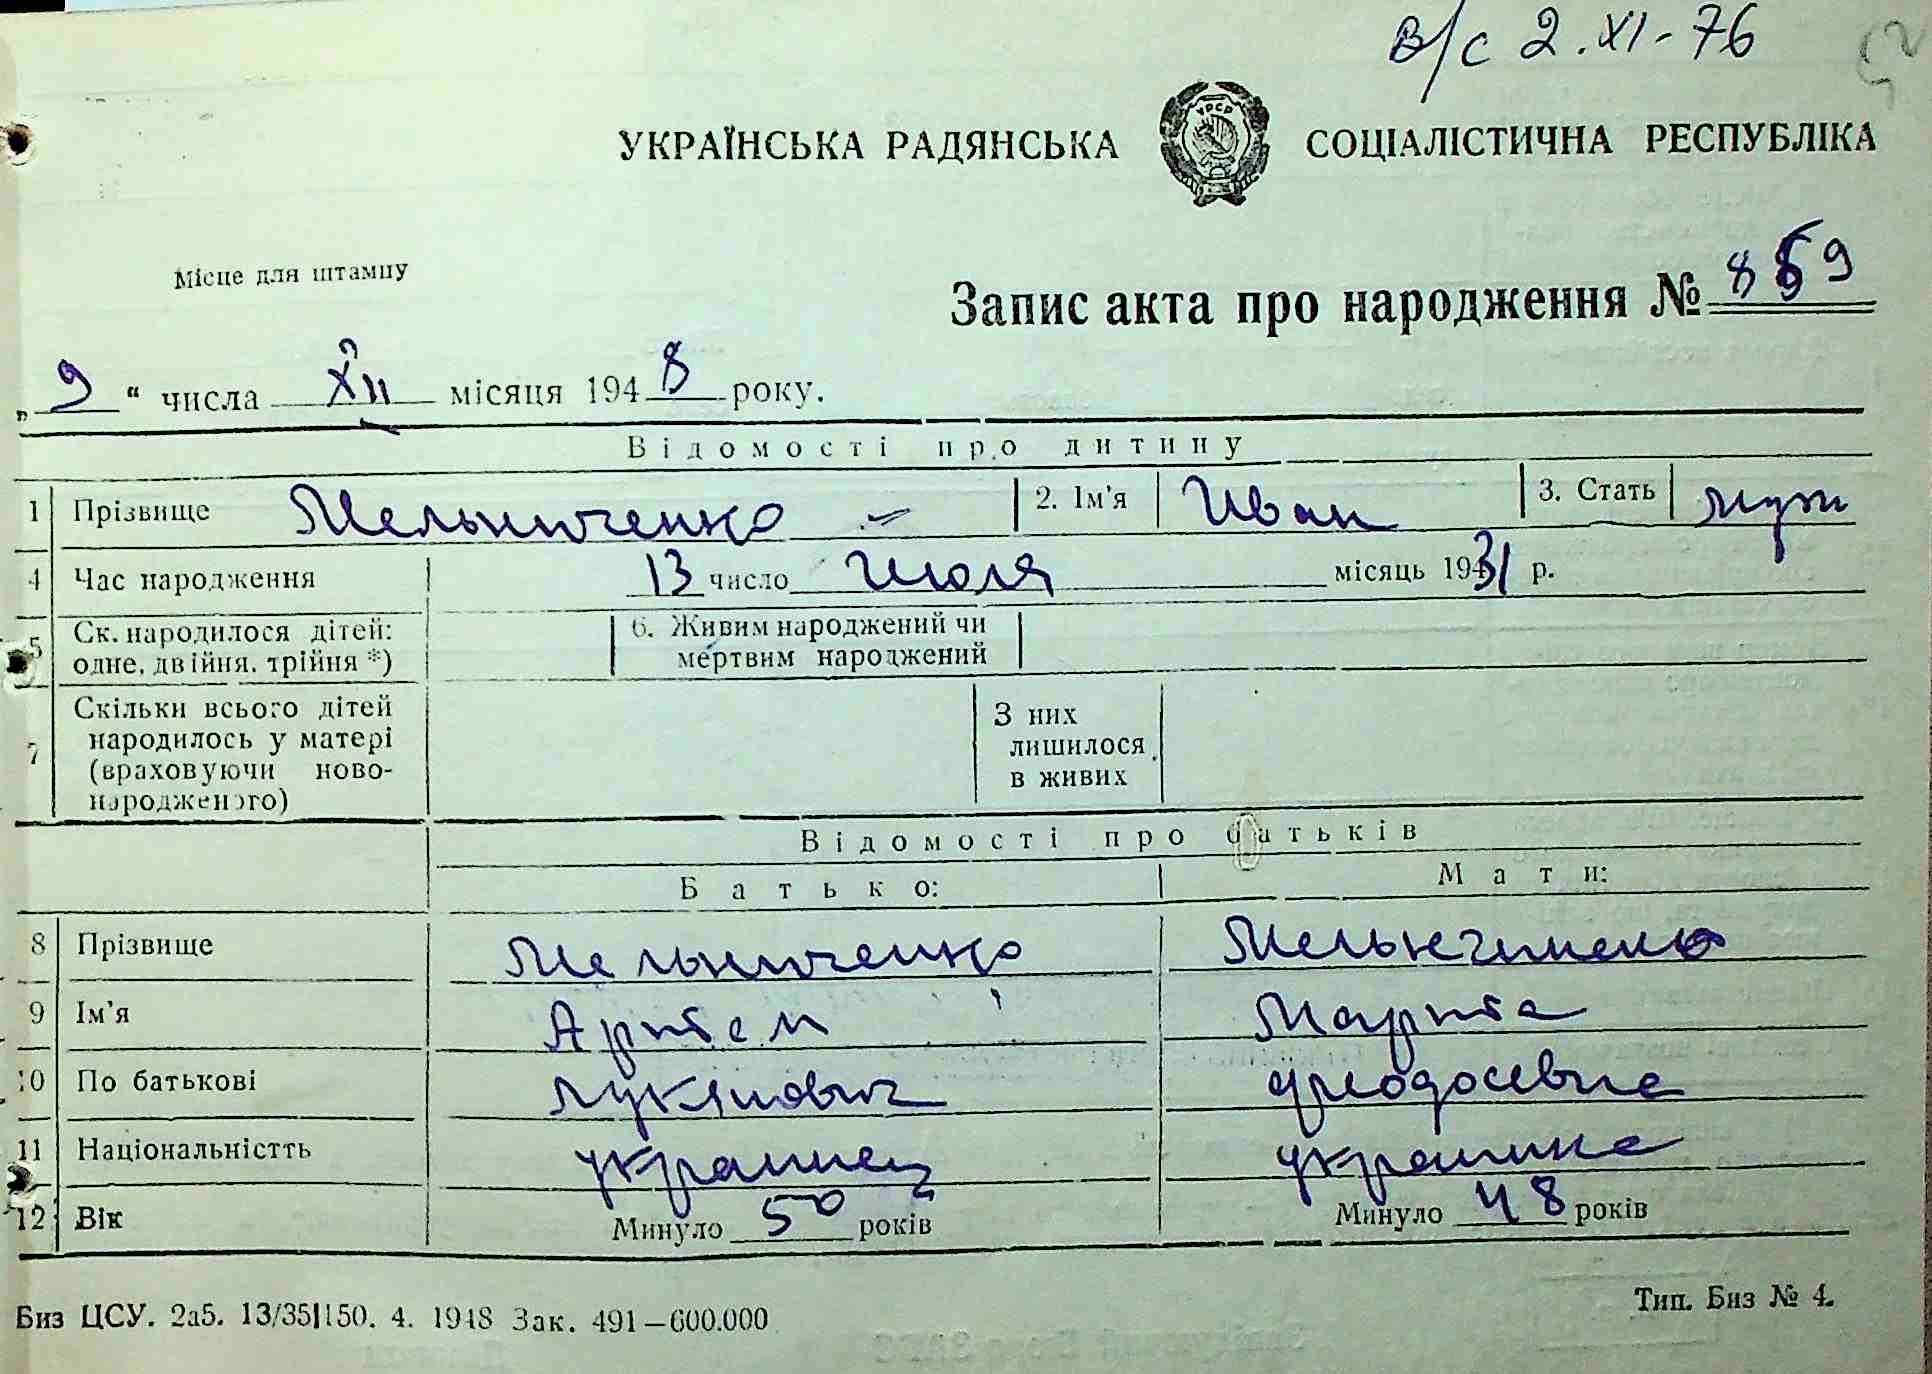 в/с 2.XI-76
52
УРСР
УКРАЇНСЬКА РАДЯНСЬКА СОЦІАЛІСТИЧНА РЕСПУБЛІКА
Місце для штампу
Запис акта про народження № 859
„ 9 “ числа XII місяця 1948 року.
Відомості про дитину
1 Прізвище Мельниченко 2. Ім'я Иван 3. Стать муж
4 Час народження 13 число Июля місяць 1931 р.
5 Ск. народилося дітей: одне, двійня, трійня *) 6. Живим народжений чи мертвим народжений
7 Скільки всього дітей народилось у матері (враховуючи ново-народженого) З них лишилося в живих
Відомості про батьків
Батько: Мати:
8 Прізвище Мельниченко Мельниченко
9 Ім'я Артем Марта
10 По батькові Лукянович Феодосевна
11 Національністть украинец украинка
12 Вік Минуло 50 років Минуло 48 років
Биз ЦСУ. 2а5. 13/35|150. 4. 1948 Зак. 491—600.000 Тип. Биз № 4.